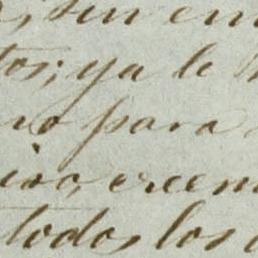 , sin em
tos; ya le
ro para
iva, creem
todos los